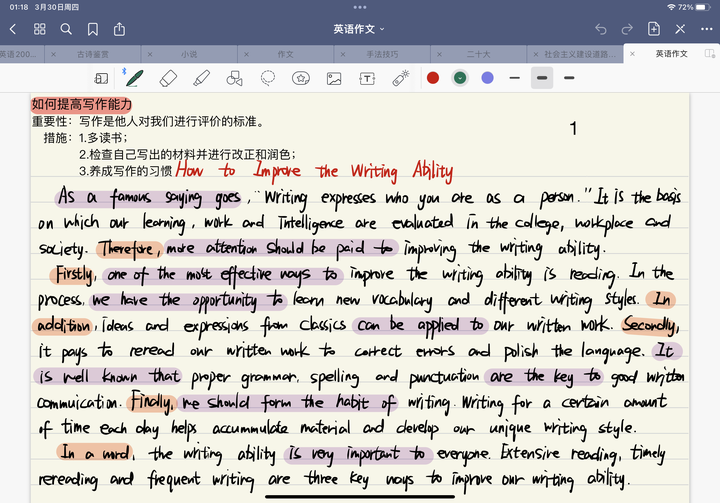 01:18 3月30日周四
72%
英语作文
英语200...
古诗鉴赏
小说
作文
手法技巧
二十大
社会主义建设道路...
英语作文
如何提高写作能力
重要性：写作是他人对我们进行评价的标准。
1
措施：1.多读书；
2.检查自己写出的材料并进行改正和润色；
3.养成写作的习惯 How to Improve the Writing Ability
As a famous saying goes, "Writing expresses who you are as a person." It is the basis
on which our learning, work and Intelligence are evaluated in the college, workplace and
society. Therefore, more attention should be paid to improving the writing ability.
Firstly, one of the most effective ways to improve the writing ability is reading. In the
process, we have the opportunity to learn new vocabulary and different writing styles. In
addition, ideas and expressions from classics can be applied to our written work. Secondly,
it pays to reread our written work to correct errors and polish the language. It
is well known that proper grammar, spelling and punctuation are the key to good written
commuication. Finally, we should form the habit of writing. Writing for a certain amount
of time each day helps accummulate material and develop our unique writing style.
In a word, the writing ability is very important to everyone. Extensive reading, timely
rereading and frequent writing are three key ways to improve our writing ability.